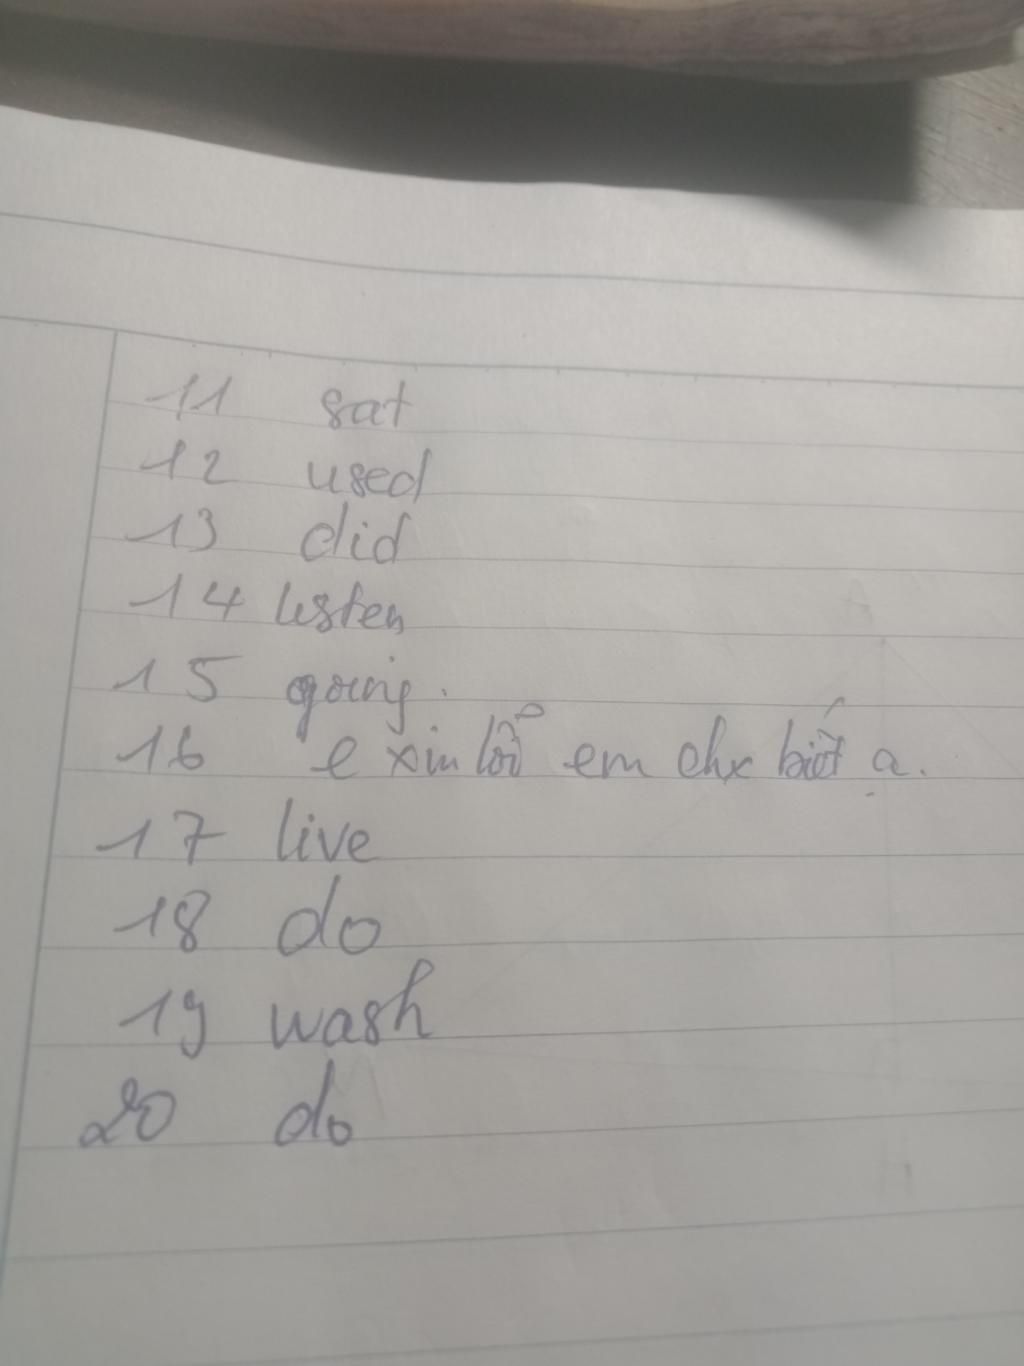 11 sat
12 used
13 did
14 listen
15 going.
16 e xin lỗi em chx biết ạ.
17 live
18 do
19 wash
20 do